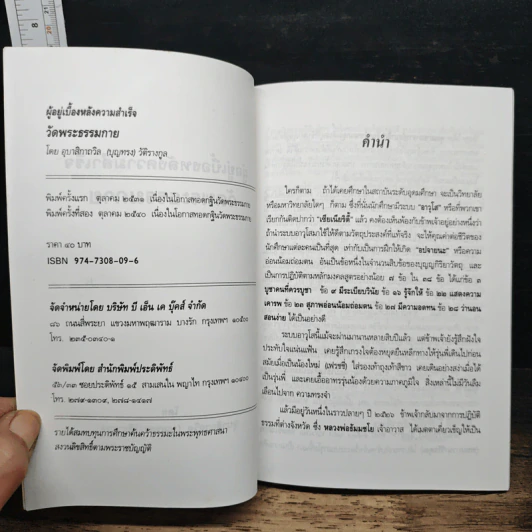 ผู้อยู่เบื้องหลังความสำเร็จ
วัดพระธรรมกาย
โดย อุบาสิกาถวิล (บุญทรง) วัติรางกูล
พิมพ์ครั้งแรก ตุลาคม ๒๕๓๑ เนื่องในโอกาสทอดกฐินวัดพระธรรมกาย
พิมพ์ครั้งที่สอง ตุลาคม ๒๕๔๐ เนื่องในโอกาสทอดกฐินวัดพระธรรมกาย
ราคา ๔๐ บาท
ISBN 974-7308-09-6
จัดจำหน่ายโดย บริษัท บี เอ็น เค บุ๊คส์ จำกัด
๘๖ ถนนสี่พระยา แขวงมหาพฤฒาราม บางรัก กรุงเทพฯ ๑๐๕๐๐
โทร. ๒๓๕-๐๓๔๐-๑
จัดพิมพ์โดย สำนักพิมพ์ประพัทธ์
๕๒/๓๓ ซอยประดิพัทธ์ ๑๕ สามเสนใน พญาไท กรุงเทพฯ ๑๐๔๐๐
โทร. ๒๗๙-๑๓๐๔, ๒๗๘-๑๔๔๗
รายได้สมทบทุนการศึกษาค้นคว้าธรรมะในพระพุทธศาสนา
สงวนลิขสิทธิ์ตามพระราชบัญญัติ
คำนำ
ใครก็ตาม ถ้าได้เคยศึกษาในสถาบันระดับอุดมศึกษา จะเป็นวิทยาลัย
หรือมหาวิทยาลัยใดๆ ก็ตาม ซึ่งที่นั่นนักศึกษามีระบบ "อาวุโส" หรือที่พวกเขา
เรียกกันติดปากว่า "เซียเนียริตี้" แล้ว คงต้องเห็นพ้องกับข้าพเจ้าอยู่อย่างหนึ่งว่า
ถ้านำระบบอาวุโสมาใช้ให้ได้ตามวัตถุประสงค์ที่แท้จริง จะให้คุณค่าต่อชีวิตของ
นักศึกษาแต่ละคนเป็นที่สุด เท่ากับเป็นการฝึกให้เกิด "อปจายนะ" หรือความ
อ่อนน้อมถ่อมตน อันเป็นข้อหนึ่งในจำนวนสิบข้อของบุญญกิริยาวัตถุ และ
เป็นการปฏิบัติตามหลักมงคลสูตรอย่างน้อย ๗ ข้อ ใน ๓๘ ข้อ ได้แก่ข้อ ๓
บูชาคนที่ควรบูชา ข้อ ๙ มีระเบียบวินัย ข้อ ๑๖ รู้จักให้ ข้อ ๒๒ แสดงความ
เคารพ ข้อ ๒๓ สุภาพอ่อนน้อมถ่อมตน ข้อ ๒๗ มีความอดทน ข้อ ๒๘ ว่านอน
สอนง่าย ได้เป็นอย่างดี
ระบบอาวุโสนี้แม้จะผ่านมานานหลายสิบปีแล้ว แต่ข้าพเจ้ายังรู้สึกฝังใจ
ประทับใจแน่นแฟ้น เคยรู้สึกเกรงใจต้องหยุดยืนหลีกทางให้รุ่นพี่เดินไปก่อน
สมัยเมื่อเป็นน้องใหม่ (เฟรชชี่)
เป็นรุ่นพี่ และเคยเอื้ออาทรรุ่นน้องด้วยความภาคภูมิใจ สิ่งเหล่านี้ไม่มีวันลืม
เลือนไปจาก ความทรงจำ
แล้วมีอยู่วันหนึ่งในราวปลายๆ ปี ๒๕๒๐ ข้าพเจ้ากลับมาจากการปฏิบัติ
ธรรมที่ต่างจังหวัด ซึ่ง หลวงพ่อธัมมชโย เจ้าอาวาส ได้เมตตาเคี่ยวเข็ญให้เป็น